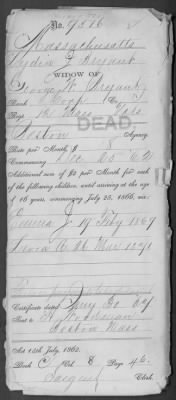 No. 9516
Massachusetts
Lydia J. Bryant
WIDOW OF
George W. Bryant
Rank Corp Co.
Reg 12 Mass Vols
DEAD
Boston Agency.
Rate per Month, $ 8
Commencing Dec 25 62
Additional sum of $2 per Month for each
of the following children, until arriving at the age
of 16 years, commencing July 25, 1866, viz:
Emma J 19 Feby 1869
26 Mar 1271
Certificate dated Aug 20 67
Sent to
Boston Mass
Act 14th July, 1862.
Book C Vol. 8 Page 46.
Clerk.